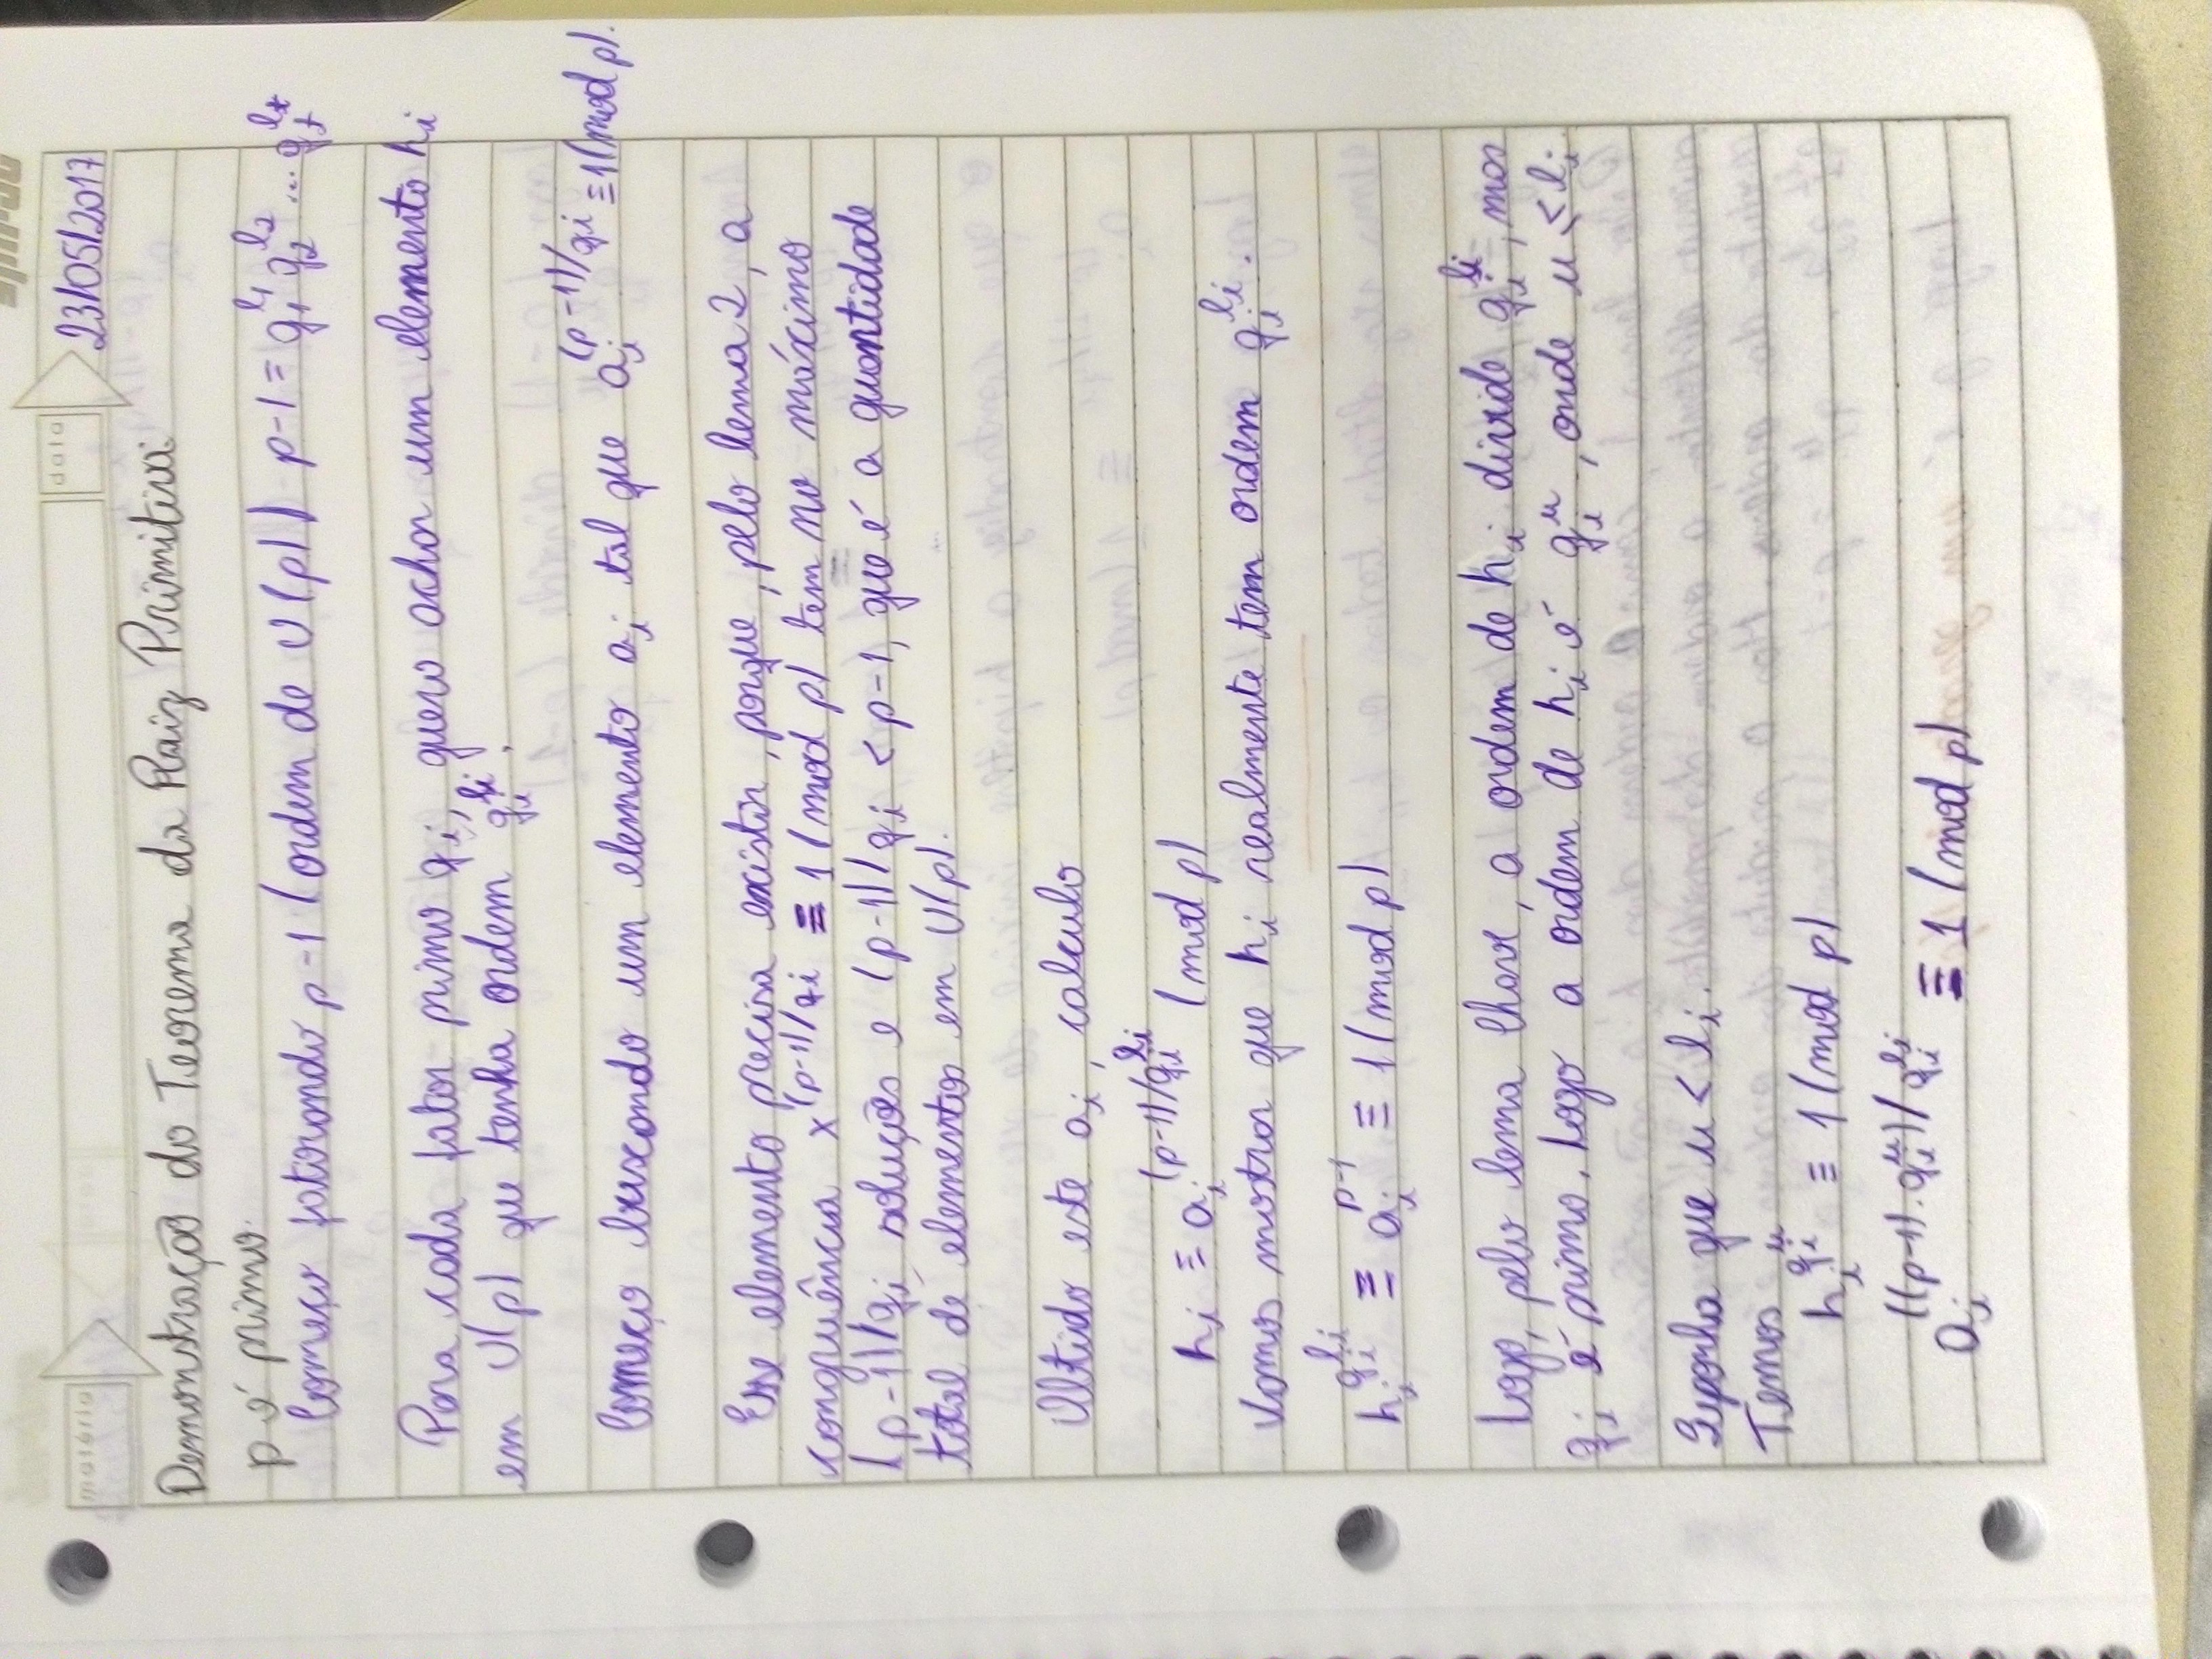 matéria
data
23/05/2017
Demonstração do Teorema da Raiz Primitiva:
p é primo.
Começo fatorando p-1 (ordem de U(p)) p-1 = q₁^l₁ q₂^l₂ ... q_t^l_t
Para cada fator primo qᵢ, quero achar um elemento hᵢ
em U(p) que tenha ordem qᵢ^lᵢ.
Começo buscando um elemento aᵢ tal que aᵢ^(p-1)/qᵢ ≡ 1 (mod p).
Esse elemento precisa existir, porque, pelo lema 2, a
congruência x^(p-1)/qᵢ ≡ 1 (mod p) tem no máximo
(p-1)/qᵢ soluções e (p-1)/qᵢ < p-1, que é a quantidade
total de elementos em U(p).
Obtido este aᵢ, calculo
hᵢ ≡ aᵢ^(p-1)/qᵢ^lᵢ (mod p)
Vamos mostrar que hᵢ realmente tem ordem qᵢ^lᵢ.
hᵢ^qᵢ^lᵢ ≡ aᵢ^p-1 ≡ 1 (mod p)
Logo, pelo lema chave, a ordem de hᵢ divide qᵢ^lᵢ, mas
qᵢ é primo. Logo a ordem de hᵢ é qᵢ^u, onde u ≤ lᵢ.
Suponha que u < lᵢ.
Temos
hᵢ^qᵢ^u ≡ 1 (mod p)
aᵢ^((p-1).qᵢ^u)/qᵢ^lᵢ ≡ 1 (mod p)